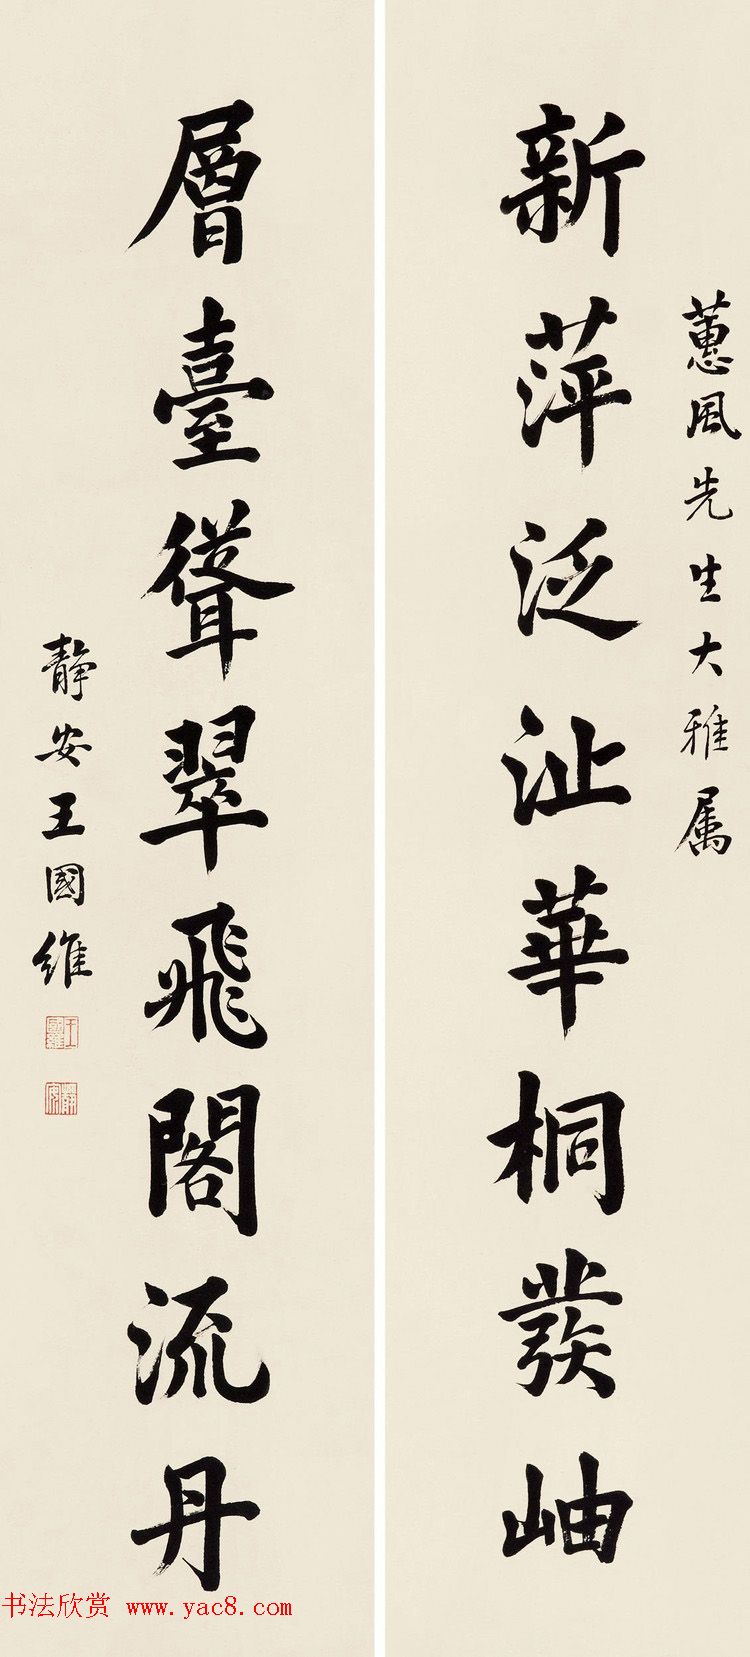 蕙風先生大雅属
新萍泛沚華桐發岫
層臺聳翠飛閣流丹
靜安王國維
王國維
靜安
书法欣赏 www.yac8.com